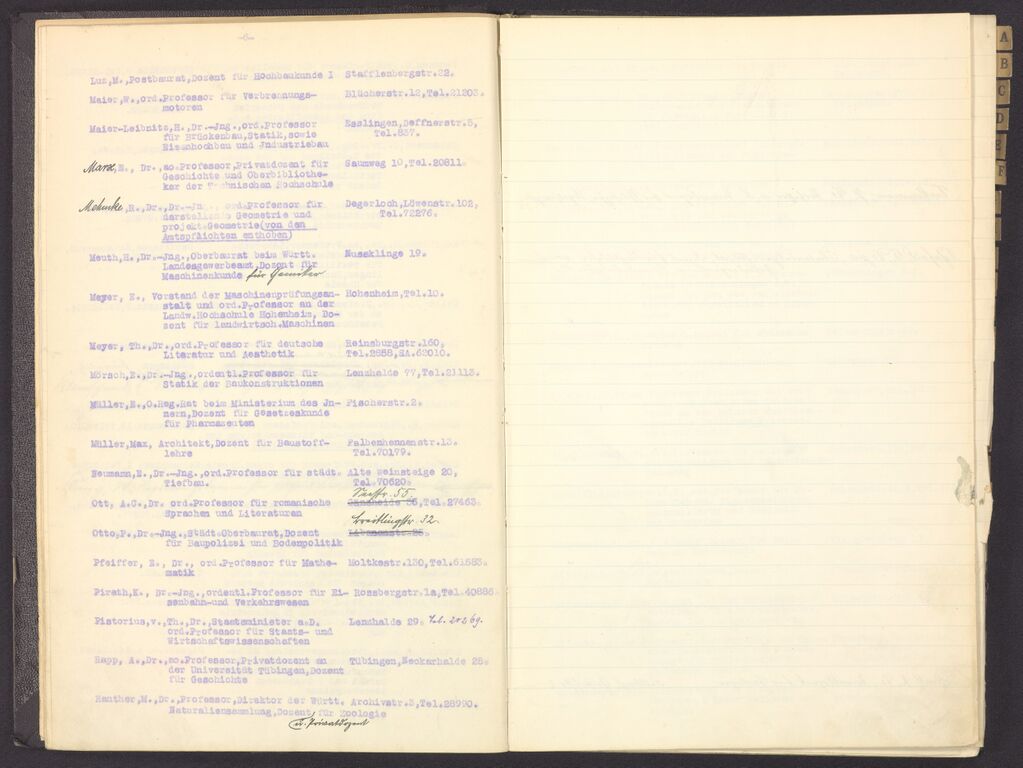 -6-
Luz,M.,Postbaurat,Dozent für Hochbaukunde I Stafflenbergstr.22.
Maier,W.,ord.Professor für Verbrennungs- Blücherstr.12,Tel.21203.
motoren
Maier-Leibnitz,H.,Dr.-Jng.,ord.Professor Esslingen,Deffnerstr.5,
für Brückenbau,Statik,sowie Tel.837.
Eisenhochbau und Jndustriebau
Marx,E., Dr.,ao.Professor,Privatdozent für Saumweg 10,Tel.20811.
Geschichte und Oberbibliothe-
kar der Technischen Hochschule
Mehmke,R.,Dr.,Dr.-Jn ord.Professor für Degerloch,Löwenstr.102,
darstellende Geometrie und Tel.72276.
projekt.Geometrie(von den
Amtspflichten enthoben)
Meuth,H.,Dr.-Jng.,Oberbaurat beim Württ. Nussklinge 19.
Landesgewerbeamt,Dozent für
Maschinenkunde für Chemiker
Meyer, E., Vorstand der Maschinenprüfungsan- Hohenheim,Tel.10.
stalt und ord.Professor an der
Landw.Hochschule Hohenheim, Do-
zent für landwirtsch.Maschinen
Meyer, Th.,Dr.,ord.Professor für deutsche Reinsburgstr.160,
Literatur und Aesthetik Tel.2858,HA.62010.
Mörsch,E.,Dr.-Jng.,ordentl.Professor für Lenzhalde 77,Tel.21113.
Statik der Baukonstruktionen
Müller,E.,O.Reg.Rat beim Ministerium des Jn- Fischerstr.2.
nern,Dozent für Gesetzeskunde
für Pharmazeuten
Müller,Max, Architekt,Dozent für Baustoff- Falbenhennenstr.13.
lehre Tel.70179.
Neumann,E.,Dr.-Jng.,ord.Professor für städt. Alte Weinsteige 20,
Tiefbau. Tel.70620.
Seestr. 55.
Ott, A.C.,Dr. ord.Professor für romanische Gänsheide 36,Tel.27463.
Sprachen und Literaturen
Breitlingstr. 32.
Otto,P.,Dr.-Jng.,Städt.Oberbaurat,Dozent
für Baupolizei und Bodenpolitik
Pfeiffer, E., Dr., ord.Professor für Mathe- Moltkestr.130,Tel.61583.
matik
Pirath,K., Dr.-Jng.,ordentl.Professor für Ei- Rossbergstr.1a,Tel.40885
senbahn-und Verkehrswesen
Pistorius,v.,Th.,Dr.,Staatsminister a.D. Lenzhalde 29. Tel. 20269.
ord.Professor für Staats- und
Wirtschaftswissenschaften
Rapp, A.,Dr.,ao.Professor,Privatdozent an Tübingen,Neckarhalde 28.
der Universität Tübingen,Dozent
für Geschichte
Rauther,M.,Dr.,Professor,Direktor der Württ. Archivstr.3,Tel.28990.
Naturaliensammlung,Dozent für Zoologie
u. Privatdozent
A
B
C
D
E
F